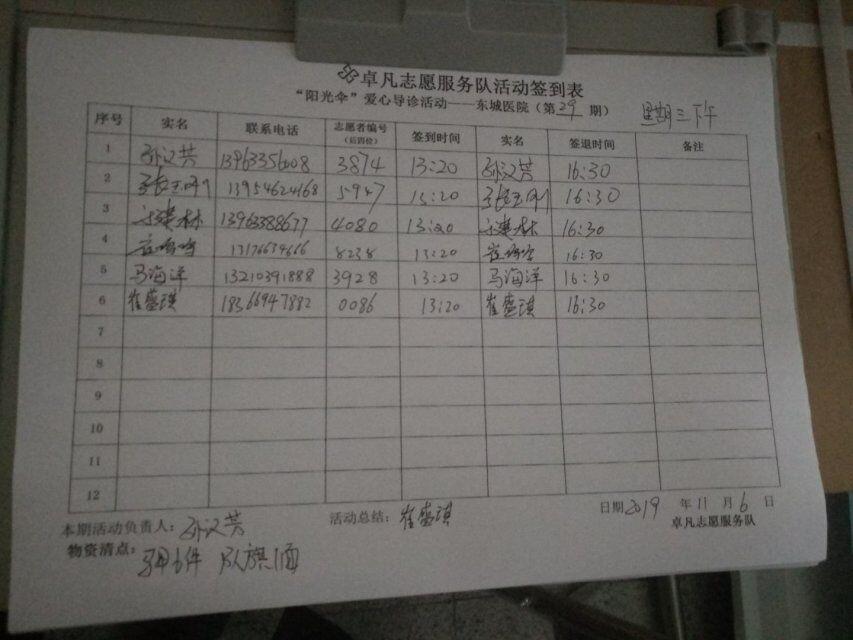 卓凡志愿服务队活动签到表
“阳光伞”爱心导诊活动——东城医院（第29期） 星期三下午
序号 实名 联系电话 志愿者编号（后四位） 签到时间 实名 签退时间 备注
1 孙汉芳 13963356008 3874 13:20 孙汉芳 16:30
2 13954624168 5947 13:20 16:30
3 建林 13963388677 4080 13:20 建林 16:30
4 崔 13176634666 8238 13:20 崔 16:30
5 马海洋 13210391888 3928 13:20 马海洋 16:30
6 崔盛琪 18366947882 0086 13:20 崔盛琪 16:30
7
8
9
10
11
12
日期2019 年11 月6 日
本期活动负责人：孙汉芳 活动总结：崔盛琪 卓凡志愿服务队
物资清点：马甲6件 队旗1面